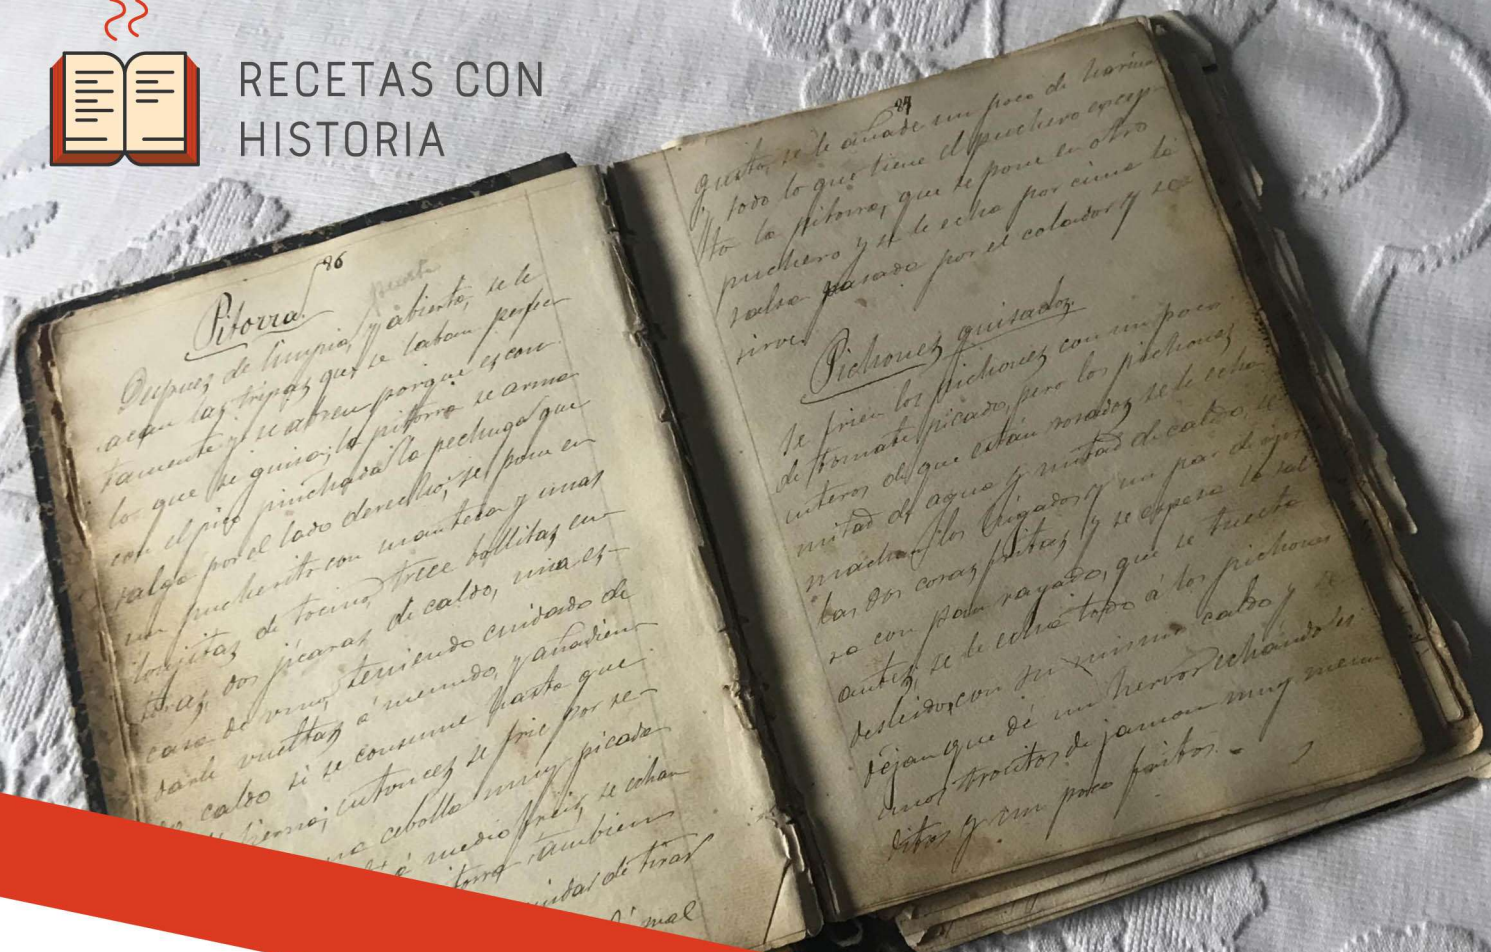 RECETAS CON
HISTORIA
86
Pitorra
puesta
Despues de limpia, y abierta, se le
sacan las tripas que se laban perfec
tamente y se abren porque es con
lo que se guisa; la pitorra se arma
con el pico pinchada la pechuga que
salga por el lado derecho; se pone en
un pucherito con manteca y unas
lonjitas de tocino, trece bollitas en
teras, dos jicaras de caldo, una es-
casa de vino, teniendo cuidado de
darle vueltas á menudo, y añadien
caldo si se consume hasta que
tierna; entonces se frie por se-
una cebolla muy picada
á medio freir, se echan
pitorra tambien
cuidar de tirar
mal
87
gusta, se le añade un poco de harina
y todo lo que tiene el puchero excep-
to la pitorra, que se pone en otro
puchero y se le echa por cima la
salsa pasada por el colador y se
sirve.
Pichones guisados
Se frien los pichones con un poco
de tomate picado, pero los pichones
enteros, de que están rosados se le echa
mitad de agua y mitad de caldo, se
machan los higados y un par de
las dos cosas fritas y se espesa la sal
sa con pan rayado, que se tuesta
antes, se le echa todo á los pichones
desleido, con su mismo caldo y se
dejan que dé un hervor echándoles
unos trocitos de jamon muy menu
ditos y un poco fritos.